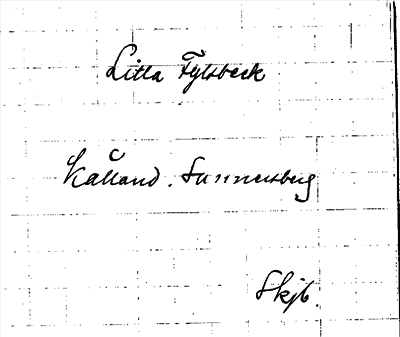 Lilla Fylsbäck
Kålland. Sunnersberg
Skjb.